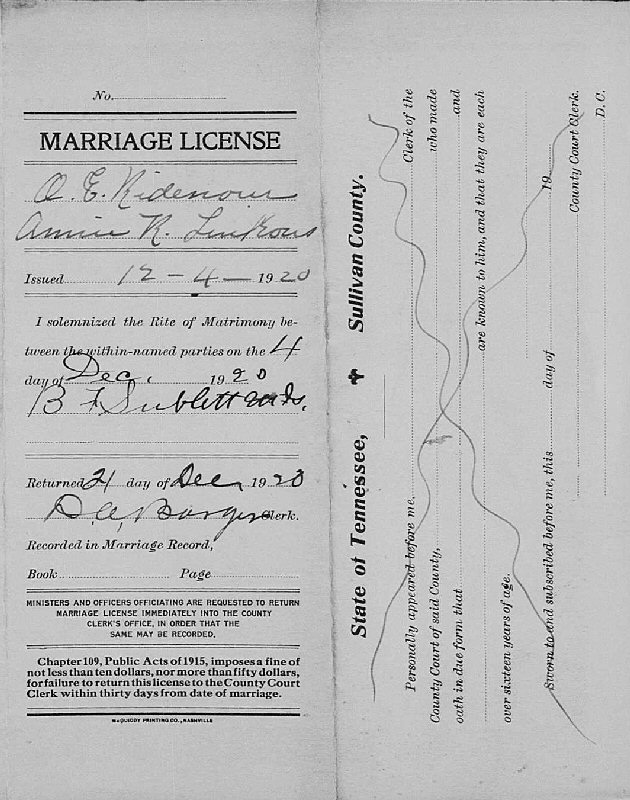 No.
MARRIAGE LICENSE
O. E. Ridenour
Annie R. Linkous
Issued 12-4-1920
I solemnized the Rite of Matrimony be-
tween the within-named parties on the 4
day of Dec. 1920
B F Sublett
Returned 21 day of Dec, 1920
Clerk.
Recorded in Marriage Record,
Book Page
MINISTERS AND OFFICERS OFFICIATING ARE REQUESTED TO RETURN
MARRIAGE LICENSE IMMEDIATELY INTO THE COUNTY
CLERK'S OFFICE, IN ORDER THAT THE
SAME MAY BE RECORDED.
Chapter 109, Public Acts of 1915, imposes a fine of
not less than ten dollars, nor more than fifty dollars,
for failure to return this license to the County Court
Clerk within thirty days from date of marriage.
McQUIDDY PRINTING CO., NASHVILLE
State of Tennessee, Sullivan County.
Personally appeared before me Clerk of the
County Court of said County, who made
oath in due form that and
are known to him, and that they are each
over sixteen years of age.
Sworn to and subscribed before me, this day of 19
County Court Clerk.
D. C.